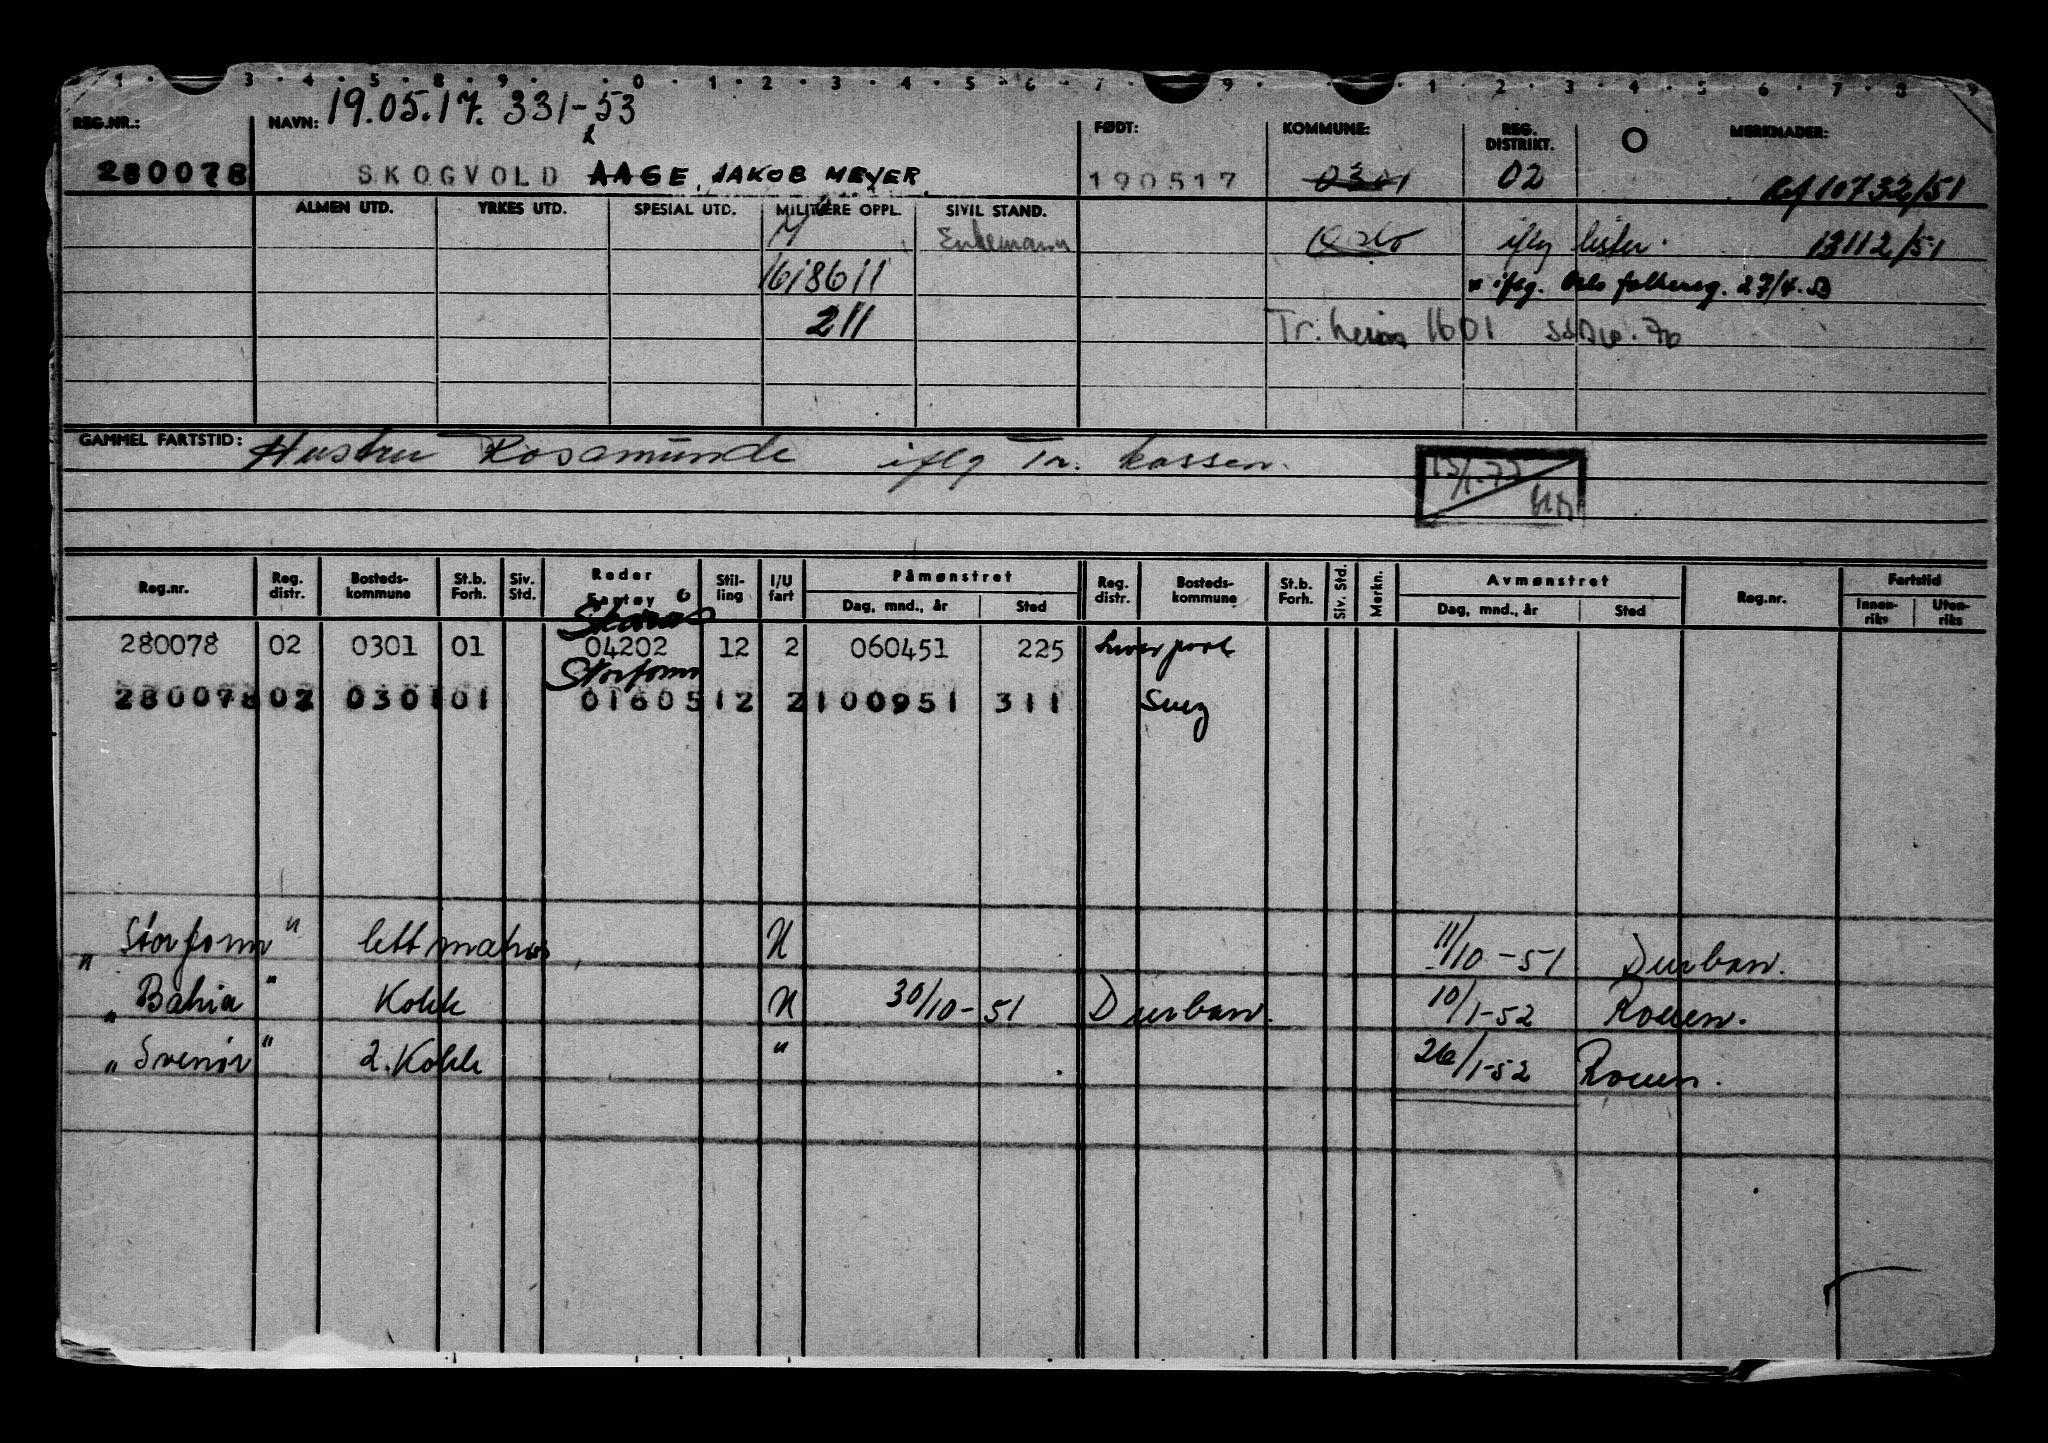 1 · 3 · 4 · 5 · 8 · 9 · · 0 · 1 · 2 · 3 · 4 · 5 · 6 · 7 · 9 · · 1 · 2 · 3 · 4 · 5 · 6 · 7 · 8 · 9
REG.NR.: NAVN: 19.05.17. 331-53 FØDT: KOMMUNE: REG. DISTRIKT. O MERKNADER:
280078 SKOGVOLD AAGE JAKOB MEYER. 190517 0301 02 10732/51
ALMEN UTD. YRKES UTD. SPESIAL UTD. MILITÆRE OPPL. SIVIL STAND.
M Enkemann Oslo iflg lister. 13112/51
16/8611 * iflg. Oslo folkereg. 27/4.53
211 Tr.heim 1601
GAMMEL FARTSTID: Hustru Rosamunde iflg Tr. kassen.
Reg.nr. Reg. distr. Bosteds- kommune St.b. Forh. Siv. Std. Reder Fartøy Stil- ling I/U fart Påmønstret Dag, mnd., år Sted Reg. distr. Bosteds- kommune St.b. Forh. Siv. Std. Merkn. Avmønstret Dag, mnd., år Sted Reg.nr. Fartstid Innen- riks Uten- riks
280078 02 0301 01 04202 12 2 060451 225 Liverpool
Storfonn
280078 02 0301 01 01605 12 2 100951 311 Suez
" Storfonn " lett matros U 11/10-51 Durban.
" Bahia " Kokk U 30/10-51 Durban. 10/1-52 Rouen.
" Svenør " 2. Kokk " 26/1-52 Rouen.